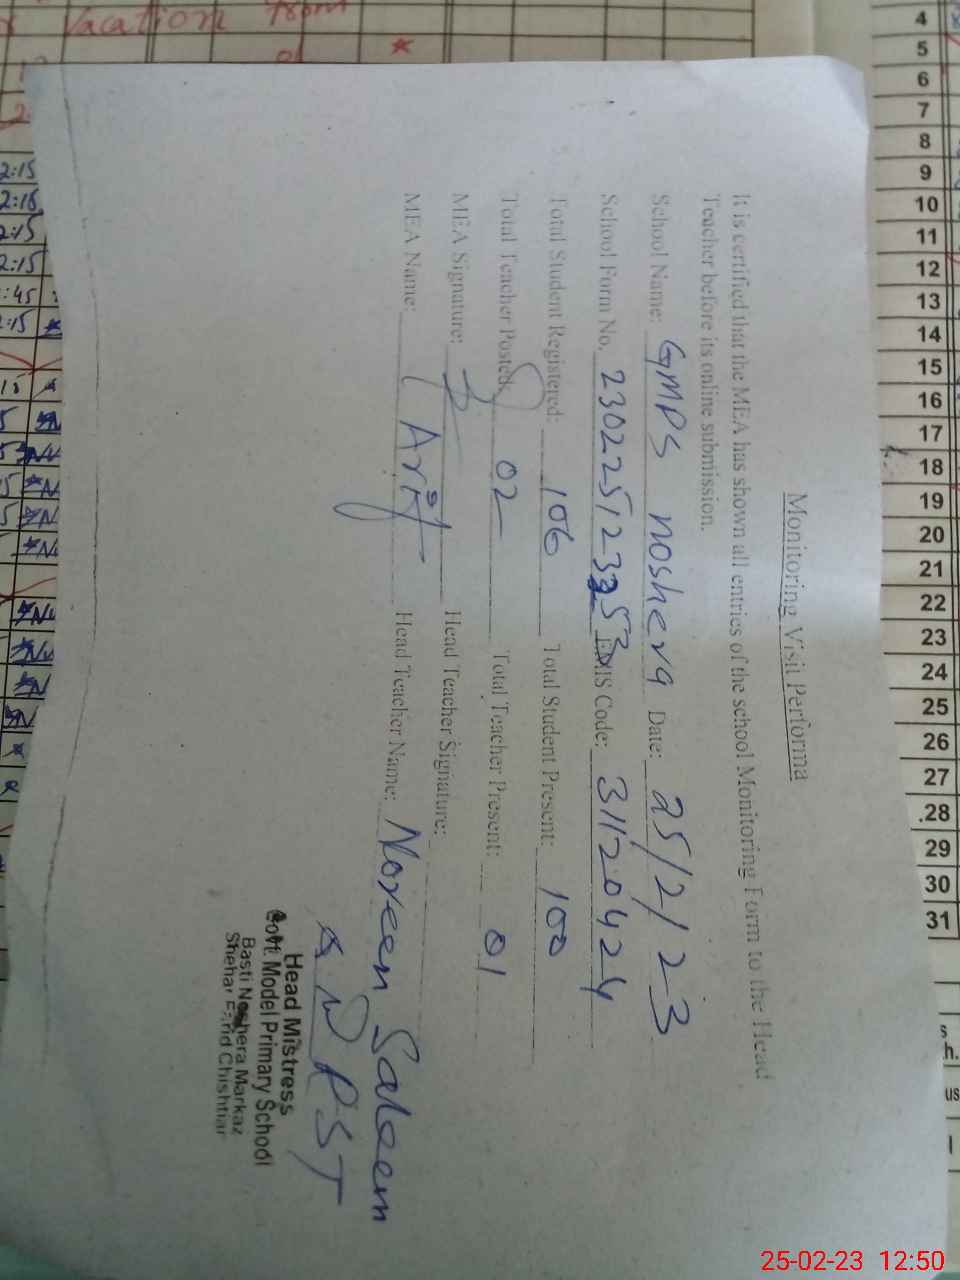 Vacation from
Monitoring Visit Performa
It is certified that the MEA has shown all entries of the school Monitoring Form to the Head
Teacher before its online submission.
School Name: GMPS noshera Date: 25/2/23
School Form No. EMIS Code: 31120424
Total Student Registered: 106 Total Student Present: 100
Total Teacher Posted: 02 Total Teacher Present: 01
MEA Signature: Head Teacher Signature:
MEA Name: Arif Head Teacher Name: Noreen Saleem
PST
Head Mistress
Govt. Model Primary School
Basti Noshera Markaz
Shehar Farid Chishtian
4
5
6
7
8
9
10
11
12
13
14
15
16
17
18
19
20
21
22
23
24
25
26
27
28
29
30
31
2:15
2:15
2:15
:45
25-02-23 12:50